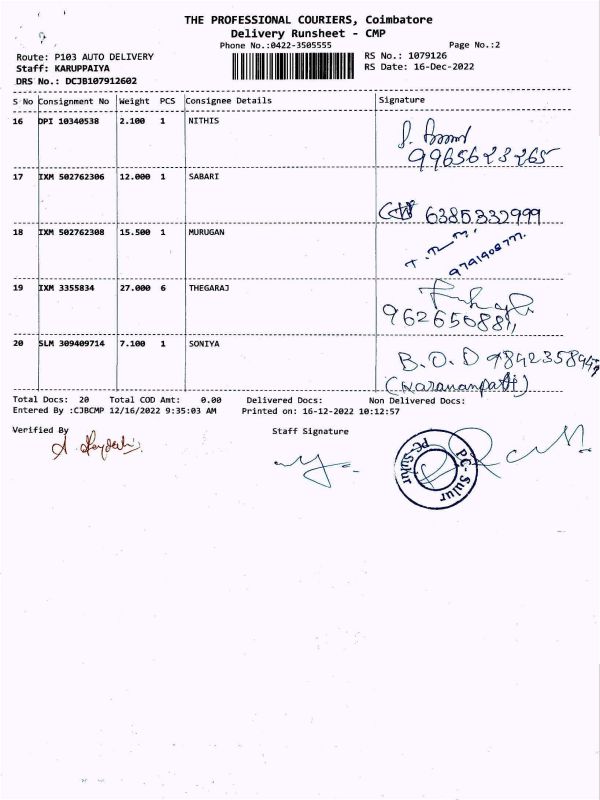 THE PROFESSIONAL COURIERS, Coimbatore
Delivery Runsheet - CMP
Phone No.:0422-3505555 Page No.:2
Route: P103 AUTO DELIVERY RS No.: 1079126
Staff: KARUPPAIYA RS Date: 16-Dec-2022
DRS No.: DCJB107912602
S No Consignment No Weight PCS Consignee Details Signature
16 DPI 10340538 2.100 1 NITHIS
9965623265
17 IXM 502762306 12.000 1 SABARI
6385332999
18 IXM 502762308 15.500 1 MURUGAN
19 IXM 3355834 27.000 6 THEGARAJ
20 SLM 309409714 7.100 1 SONIYA
B.O.D
Total Docs: 20 Total COD Amt: 0.00 Delivered Docs: Non Delivered Docs:
Entered By :CJBCMP 12/16/2022 9:35:03 AM Printed on: 16-12-2022 10:12:57
Verified By Staff Signature
PC-Sulur
PC-Sulur